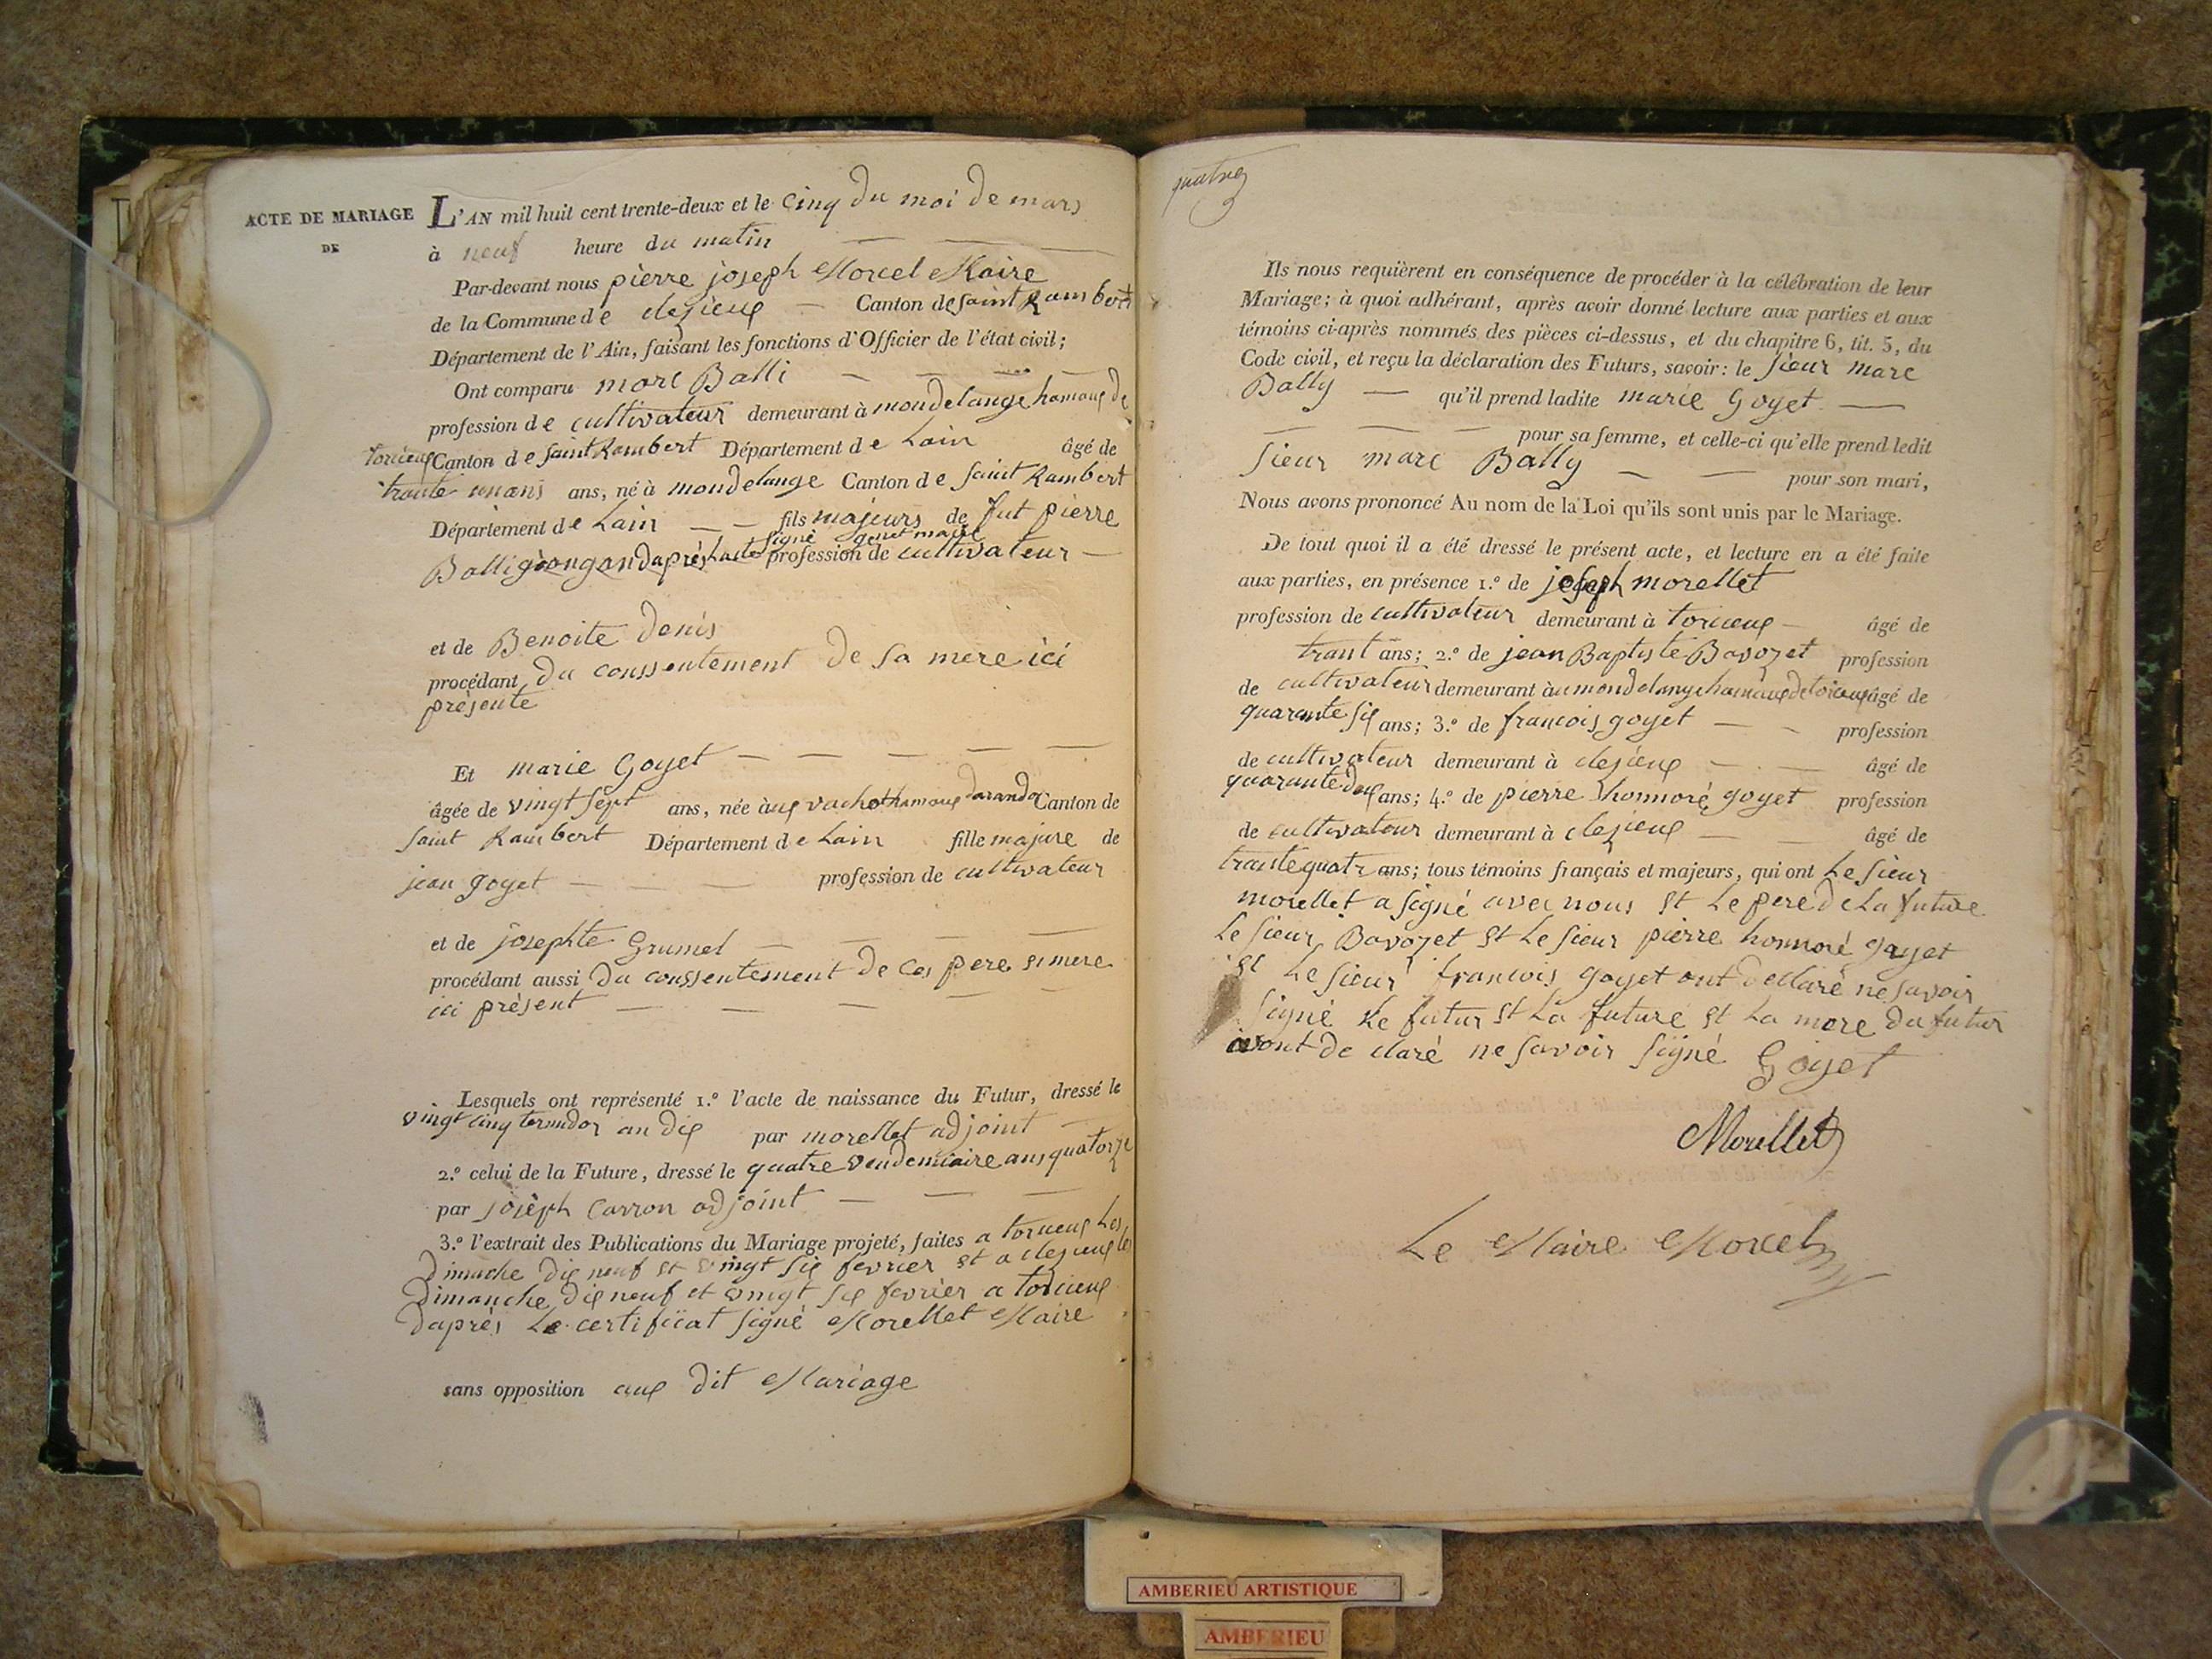 ACTE DE MARIAGE
DE
L'AN mil huit cent trente-deux et le cinq du moi de mars
à neuf heure du matin
Par-devant nous pierre joseph Morcel Maire
de la Commune de clezieux Canton de saint Rambert
Département de l'Ain, faisant les fonctions d'Officier de l'état civil;
Ont comparu marc Balli
profession de cultivateur demeurant à mondelange hamaux de
torcieux Canton de saint Rambert Département de Lain âgé de
trante un ans ans, né à mondelange Canton de saint Rambert
Département de Lain fils majeurs de fut pierre
signé genet maire
Balli dapres Lacte profession de cultivateur
et de Benoite denis
procédant du conssentement de sa mere ici
présente
Et marie Goyet
âgée de vingt sept ans, née à aux vachot hamaux darandas Canton de
saint Rambert Département de Lain fille majure de
jean goyet profession de cultivateur
et de josephte Grumel
procédant aussi du conssentement de ces pere et mere
ici présent
Lesquels ont représenté 1.º l'acte de naissance du Futur, dressé le
vingt cinq termidor an dix par morellet adjoint
2.º celui de la Future, dressé le quatre vendemiaire ans quatorze
par joseph Carron adjoint
3.º l'extrait des Publications du Mariage projeté, faites a torcieux Les
dimache dix neuf et vingt six fevrier et a clezieux les
dimanche dix neuf et vingt six fevrier a torcieux
dapres Le certificat signé Morellet Maire
sans opposition aux dit Mariage
quatre
Ils nous requièrent en conséquence de procéder à la célébration de leur
Mariage; à quoi adhérant, après avoir donné lecture aux parties et aux
témoins ci-après nommés des pièces ci-dessus, et du chapitre 6, tit. 5, du
Code civil, et reçu la déclaration des Futurs, savoir: le sieur marc
Bally qu'il prend ladite marie Goyet
pour sa femme, et celle-ci qu'elle prend ledit
sieur marc Bally pour son mari,
Nous avons prononcé Au nom de la Loi qu'ils sont unis par le Mariage.
De tout quoi il a été dressé le présent acte, et lecture en a été faite
aux parties, en présence 1.º de joseph morellet
profession de cultivateur demeurant à torcieux âgé de
trant ans; 2.º de jean Baptiste Bavozet profession
de cultivateur demeurant à au mondelange hamaux de torcieux âgé de
quarante six ans; 3.º de francois goyet profession
de cultivateur demeurant à clezieux âgé de
quarante deux ans; 4.º de pierre honnoré goyet profession
de cultivateur demeurant à clezieux âgé de
trante quatr ans; tous témoins français et majeurs, qui ont Le sieur
morellet a signé avec nous et Le pere de La future
Le sieur Bavozet et Le sieur pierre honnoré goyet
et Le sieur francois goyet ont declaré ne savoir
signé Le futur et La future et La mere du futur
ont de claré ne savoir signé Goyet
Morellet
Le Maire Morcel
AMBERIEU ARTISTIQUE
AMBERIEU